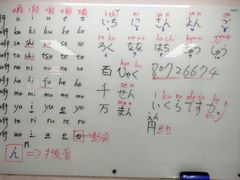 a i u e o
ka ki ku ke ko
sa shi su se so
ta chi tsu te to
na ni nu ne no
ha hi fu he ho
ma mi mu me mo
ya i yu e yo
ra ri ru re ro
wa i u e o
ん => 撥音
n
ichi ni san yon go
いち に さん よん ご
ろく なな はち きゅう じゅう
百 ひゃく
千 せん
万 まん
80726674
i ku ra de su ka
いくらですか。
円 en